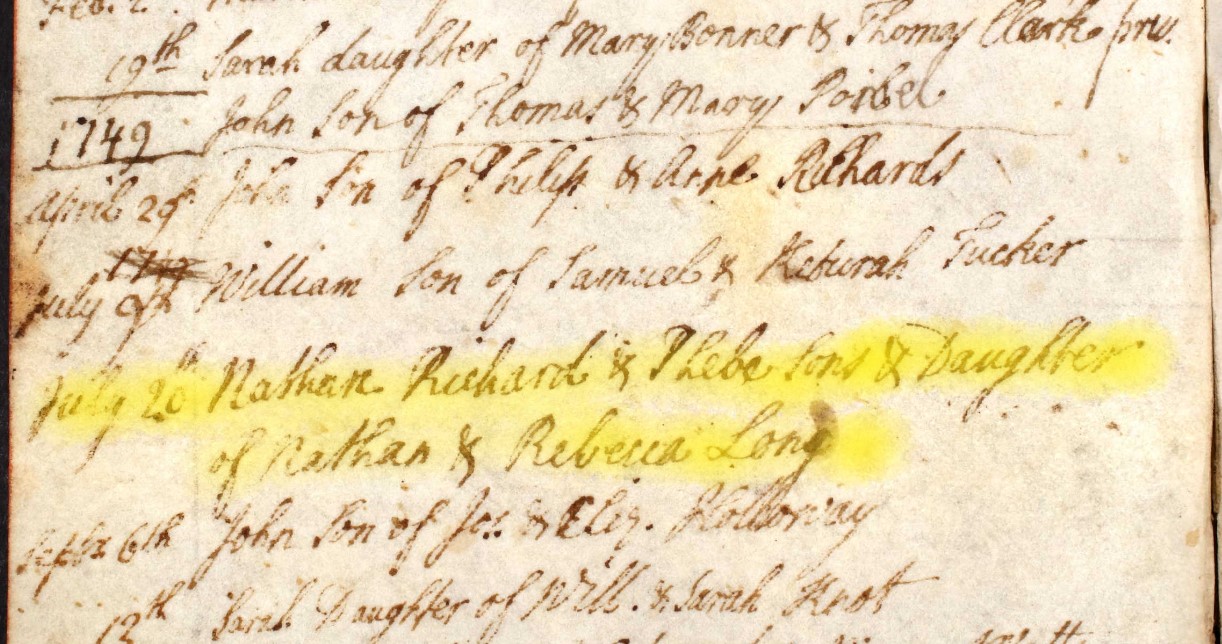 Feb. 2
19th Sarah daughter of Mary Bonner & Thomas Clark priv.
1749 John Son of Thomas & Mary
April 29th John Son of Philip & Anne Richards
July 9th William Son of Samuel & Keturah Tucker
July 20th Nathan Richard & Phebe Sons & Daughter
of Nathan & Rebecca Long
Septbr 6th John Son of Jos. & Eliz. Holloway
13th Sarah Daughter of Will. & Sarah Knot